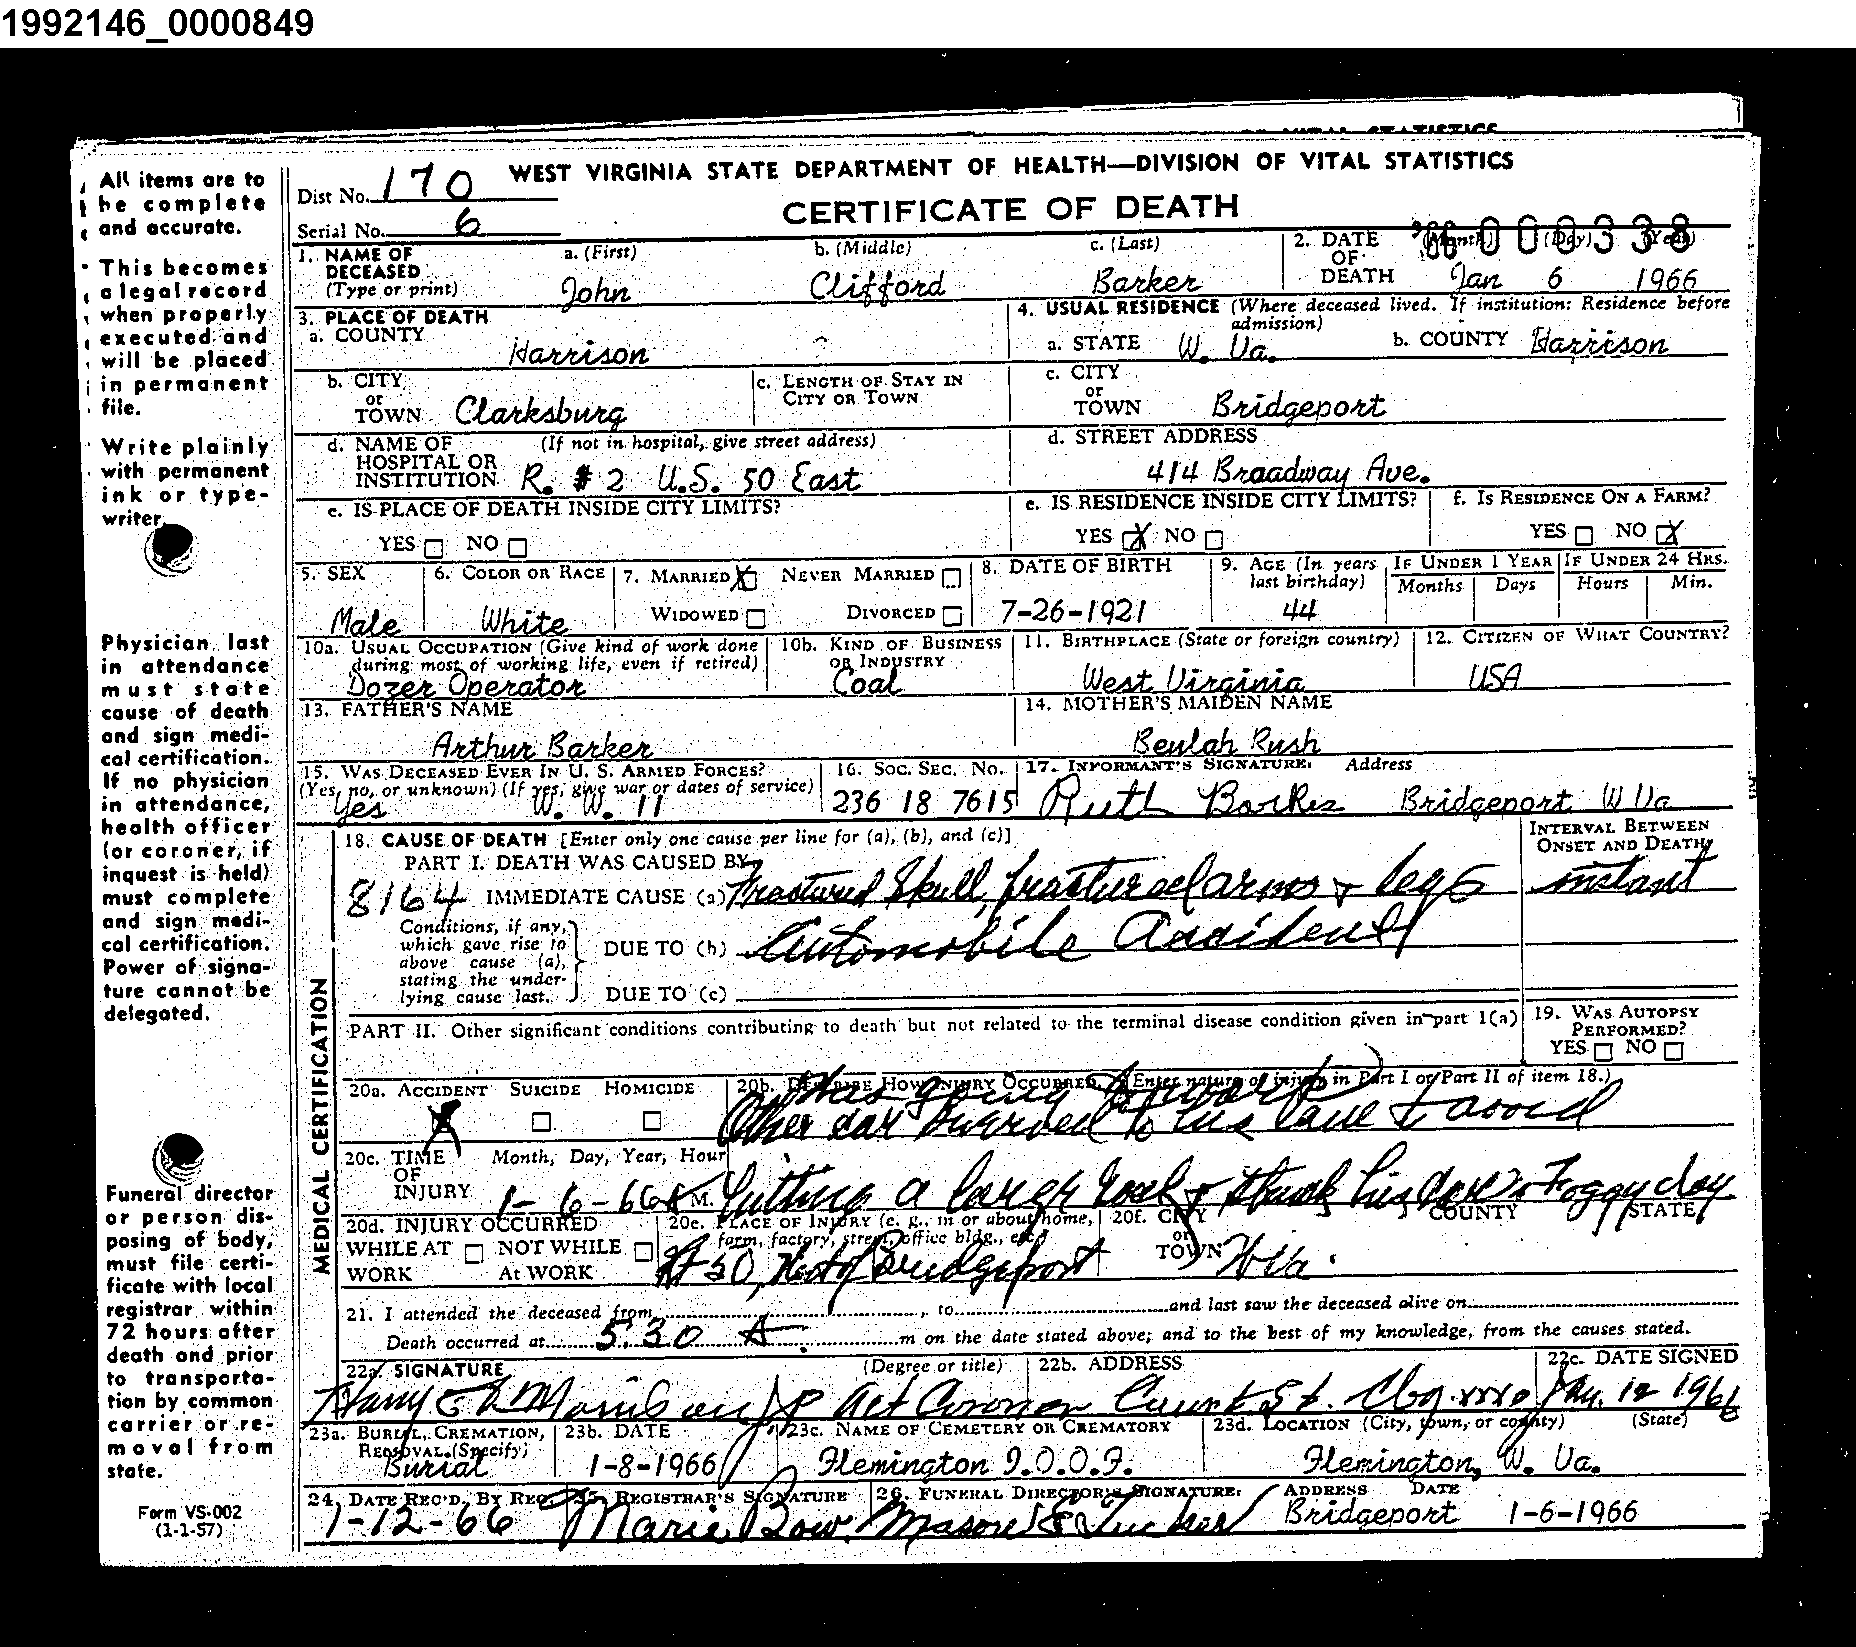 1992146_0000849
WEST VIRGINIA STATE DEPARTMENT OF HEALTH—DIVISION OF VITAL STATISTICS
CERTIFICATE OF DEATH
Dist No. 170
Serial No. 6
'66 000338
All items are to
be complete
and accurate.
This becomes
a legal record
when properly
executed and
will be placed
in permanent
file.
Write plainly
with permanent
ink or type-
writer
Physician last
in attendance
must state
cause of death
and sign medi-
cal certification.
If no physician
in attendance,
health officer
(or coroner, if
inquest is held)
must complete
and sign medi-
cal certification.
Power of signa-
ture cannot be
delegated.
Funeral director
or person dis-
posing of body,
must file certi-
ficate with local
registrar within
72 hours after
death and prior
to transporta-
tion by common
carrier or re-
moval from
state.
Form VS-002
(1-1-57)
1. NAME OF DECEASED (Type or print) a. (First) John b. (Middle) Clifford c. (Last) Barker
2. DATE OF DEATH (Month) (Day) (Year) Jan 6 1966
3. PLACE OF DEATH
a. COUNTY Harrison
4. USUAL RESIDENCE (Where deceased lived. If institution: Residence before admission)
a. STATE W. Va. b. COUNTY Harrison
b. CITY or TOWN Clarksburg
c. LENGTH OF STAY IN CITY OR TOWN
c. CITY or TOWN Bridgeport
d. NAME OF HOSPITAL OR INSTITUTION (If not in hospital, give street address) R. #2 U.S. 50 East
d. STREET ADDRESS 414 Broadway Ave.
e. IS PLACE OF DEATH INSIDE CITY LIMITS? YES ☐ NO ☐
e. IS RESIDENCE INSIDE CITY LIMITS? YES ☒ NO ☐
f. IS RESIDENCE ON A FARM? YES ☐ NO ☒
5. SEX Male
6. COLOR OR RACE White
7. MARRIED ☒ NEVER MARRIED ☐ WIDOWED ☐ DIVORCED ☐
8. DATE OF BIRTH 7-26-1921
9. AGE (In years last birthday) 44
IF UNDER 1 YEAR Months Days
IF UNDER 24 HRS. Hours Min.
10a. USUAL OCCUPATION (Give kind of work done during most of working life, even if retired) Dozer Operator
10b. KIND OF BUSINESS OR INDUSTRY Coal
11. BIRTHPLACE (State or foreign country) West Virginia
12. CITIZEN OF WHAT COUNTRY? USA
13. FATHER'S NAME Arthur Barker
14. MOTHER'S MAIDEN NAME Beulah Rush
15. WAS DECEASED EVER IN U. S. ARMED FORCES? (Yes, no, or unknown) (If yes, give war or dates of service) Yes W. W. 11
16. SOC. SEC. NO. 236 18 7615
17. INFORMANT'S SIGNATURE: Address Ruth Barker Bridgeport W Va
MEDICAL CERTIFICATION
18. CAUSE OF DEATH [Enter only one cause per line for (a), (b), and (c)]
INTERVAL BETWEEN ONSET AND DEATH
PART I. DEATH WAS CAUSED BY
8164 IMMEDIATE CAUSE (a) Fractured Skull, fractured arms & legs instant
Conditions, if any, which gave rise to above cause (a), stating the underlying cause last.
DUE TO (b) Automobile Accident
DUE TO (c)
PART II. Other significant conditions contributing to death but not related to the terminal disease condition given in part 1(a)
19. WAS AUTOPSY PERFORMED? YES ☐ NO ☐
20a. ACCIDENT ☒ SUICIDE ☐ HOMICIDE ☐
20b. DESCRIBE HOW INJURY OCCURRED. (Enter nature of injury in Part I or Part II of item 18.)
going to work)
Other car swerved to his lane to avoid
hitting a large & struck his Foggy day
20c. TIME OF INJURY Month, Day, Year, Hour 1-6-66 M.
20d. INJURY OCCURRED WHILE AT WORK ☐ NOT WHILE AT WORK ☐
20e. PLACE OF INJURY (e. g., in or about home, farm, factory, street, office bldg., etc.) Rt 50, West of Bridgeport
20f. CITY or TOWN COUNTY STATE W Va.
21. I attended the deceased from, to and last saw the deceased alive on
Death occurred at 5:30 A. m on the date stated above; and to the best of my knowledge, from the causes stated.
22a. SIGNATURE (Degree or title) Harry JP Act Coroner
22b. ADDRESS Court St. Clbg.
22c. DATE SIGNED Jan. 12 1966
23a. BURIAL, CREMATION, REMOVAL (Specify) Burial
23b. DATE 1-8-1966
23c. NAME OF CEMETERY OR CREMATORY Flemington I.O.O.F.
23d. LOCATION (City, town, or county) (State) Flemington, W. Va.
24. DATE REC'D. BY REG. 1-12-66
25. REGISTRAR'S SIGNATURE Marie Bow
26. FUNERAL DIRECTOR'S SIGNATURE: Mason E Tucker
ADDRESS Bridgeport DATE 1-6-1966